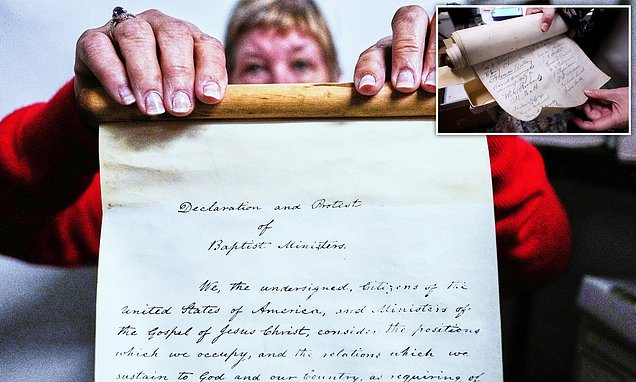 Declaration and Protest
of
Baptist Ministers.
We, the undersigned, Citizens of the
United States of America, and Ministers of
the Gospel of Jesus Christ, consider the positions
which we occupy, and the relations which we
sustain to God and our Country, as requiring of